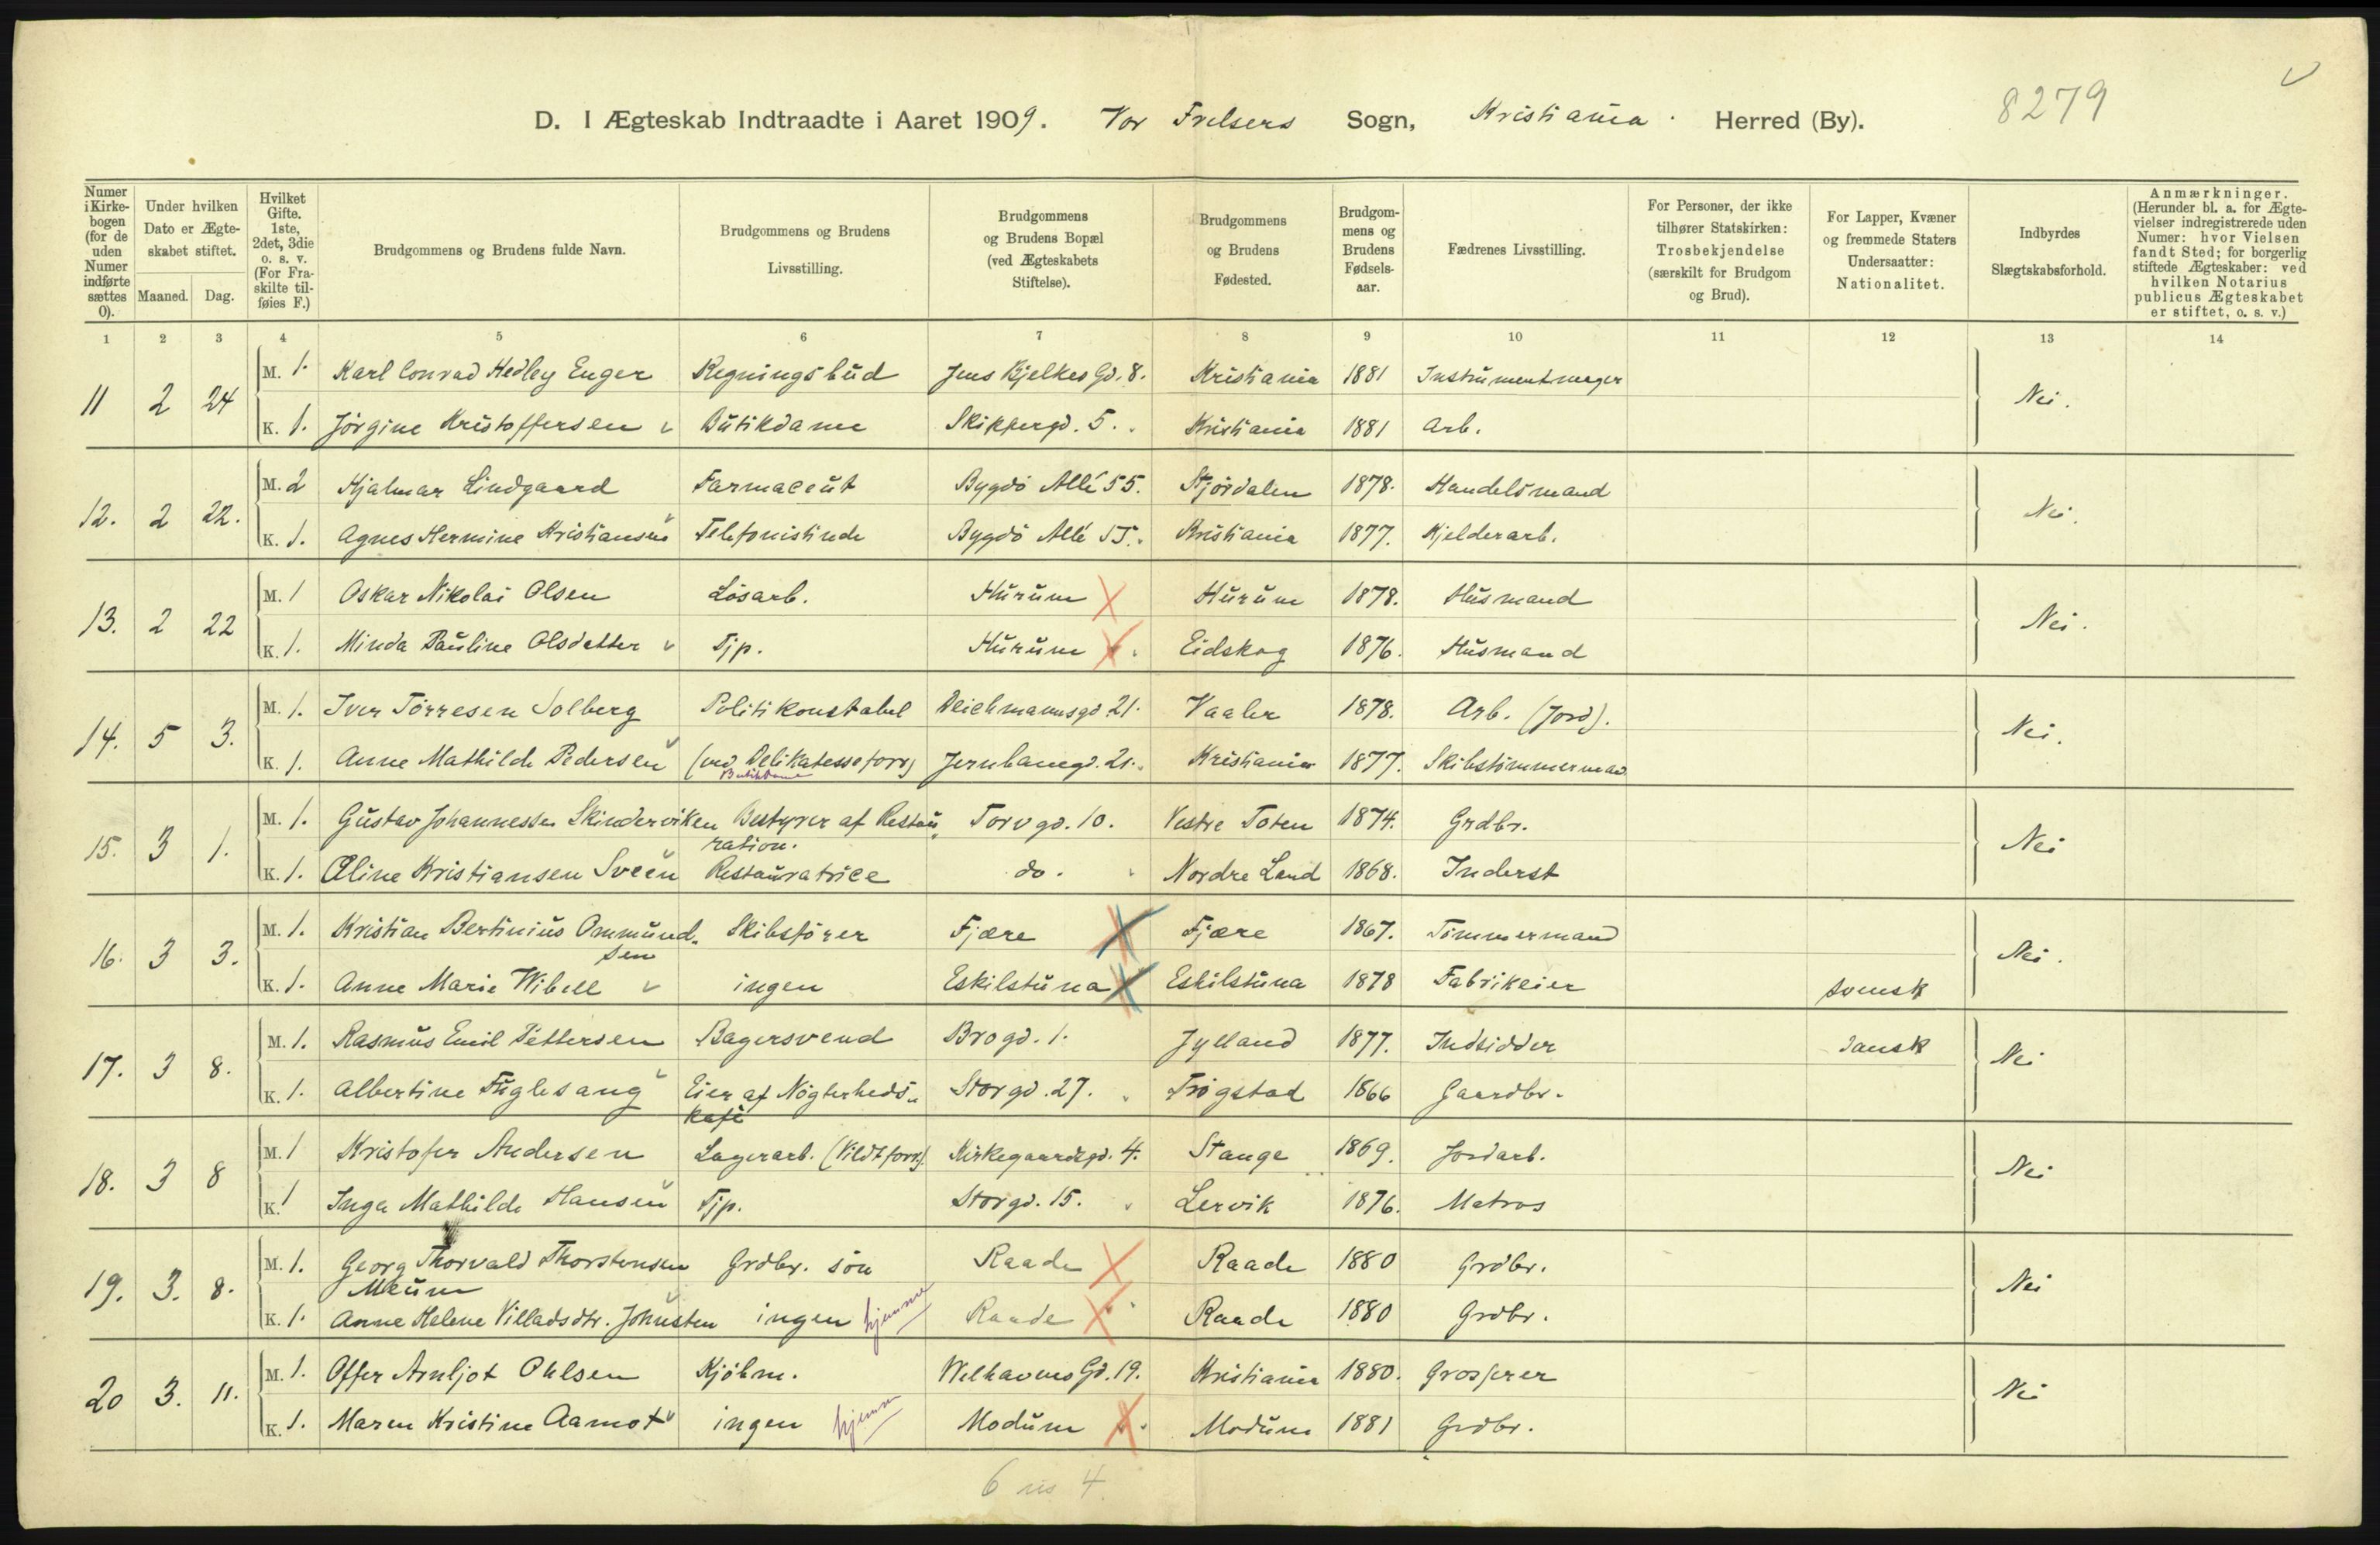 D. I Ægteskab Indtraadte i Aaret 1909. Vor Frelsers Sogn, Kristiania. Herred (By). 8279
Numer i Kirke-bogen (for de uden Numer indførte sættes 0).
Under hvilken Dato er Ægte-skabet stiftet.
Maaned. Dag.
Hvilket Gifte. 1ste, 2det, 3die o. s. v. (For Fra-skilte til-føies F.)
Brudgommens og Brudens fulde Navn.
Brudgommens og Brudens Livsstilling.
Brudgommens og Brudens Bopæl (ved Ægteskabets Stiftelse).
Brudgommens og Brudens Fødested.
Brudgom-mens og Brudens Fødsels-aar.
Fædrenes Livsstilling.
For Personer, der ikke tilhører Statskirken: Trosbekjendelse (særskilt for Brudgom og Brud).
For Lapper, Kvæner og fremmede Staters Undersaatter: Nationalitet.
Indbyrdes Slægtskabsforhold.
Anmærkninger. (Herunder bl. a. for Ægte-vielser indregistrerede uden Numer: hvor Vielsen fandt Sted; for borgerlig stiftede Ægteskaber: ved hvilken Notarius publicus Ægteskabet er stiftet, o. s. v.)
1 2 3 4 5 6 7 8 9 10 11 12 13 14
M. 1. Karl Conrad Hedley Enger Regningsbud Jens Bjelkes Gd. 8. Kristiania 1881 Instrumentmager
11 2 24 Nei.
K. 1. Jörgine Kristoffersen Butikdame Skippergd. 5. Kristiania 1881 Arb.
M. 2 Hjalmar Lindgaard Farmaceut Bygdö Allé 55. Stjördalen 1878. Handelsmand
12. 2 22. Nei.
K. 1. Agnes Hermine Kristiansen Telefonistinde Bygdö Allé 55. Kristiania 1877. Kjelderarb.
M. 1 Oskar Nikolai Olsen Lösarb. Hurum Hurum 1878. Husmand
13. 2 22 Nei.
K. 1. Minda Pauline Olsdatter Tjp. Hurum Eidskog 1876. Husmand
M. 1. Iver Törresen Solberg Politikonstabel Deichmannsgd. 21. Vaaler 1878. Arb. (Jord).
14. 5 3. Nei.
K. 1. Anne Mathilde Pedersen (ved Delikatesseforr) Jernbanegd. 21. Kristiania 1877. Skibstömmermand
Butikdame
M. 1. Gustav Johannessen Skinderviken Bestyrer af Restau- Torvgd. 10. Vestre Toten 1874. Grdbr.
15. 3 1. ration. Nei
K. 1. Oline Kristiansen Sveen Restauratrice do. Nordre Land 1868. Inderst
M. 1. Kristian Bertinius Ommund- Skibsförer Fjære Fjære 1867. Tömmermand
16. 3 3. sen Nei.
K. 1. Anne Marie Wibell ingen Eskilstuna Eskilstuna 1878 Fabrikeier svensk
M. 1. Rasmus Emil Pettersen Bagersvend Brogd. 1. Jylland 1877. Indsidder dansk
17. 3 8. Nei
K. 1. Albertine Fuglesang Eier af Nögterheds- Storgd. 27. Trögstad 1866 Gaardbr.
kafé
M. 1 Kristofer Andersen Lagerarb. (Vildtforr.) Kirkegaardsgd. 4. Stange 1869. Jordarb.
18. 3 8 Nei
K. 1 Inga Mathilde Hansen Tjp. Storgd. 15. Lervik 1876. Matros
M. 1. Georg Thorvald Thorstensen Grdbr. sön Raade Raade 1880 Grdbr.
19. 3. 8. Nei
K. 1. Anne Helene Villadsdtr. ingen hjemme Raade Raade 1880 Grdbr.
M. 1. Offer Arnljot Ohlsen Kjöbm. Welhavens Gd. 19. Kristiania 1880. Grosserer
20 3. 11. Nei
K. 1. Maren Kristine Aamot ingen hjemme Modum Modum 1881 Grdbr.